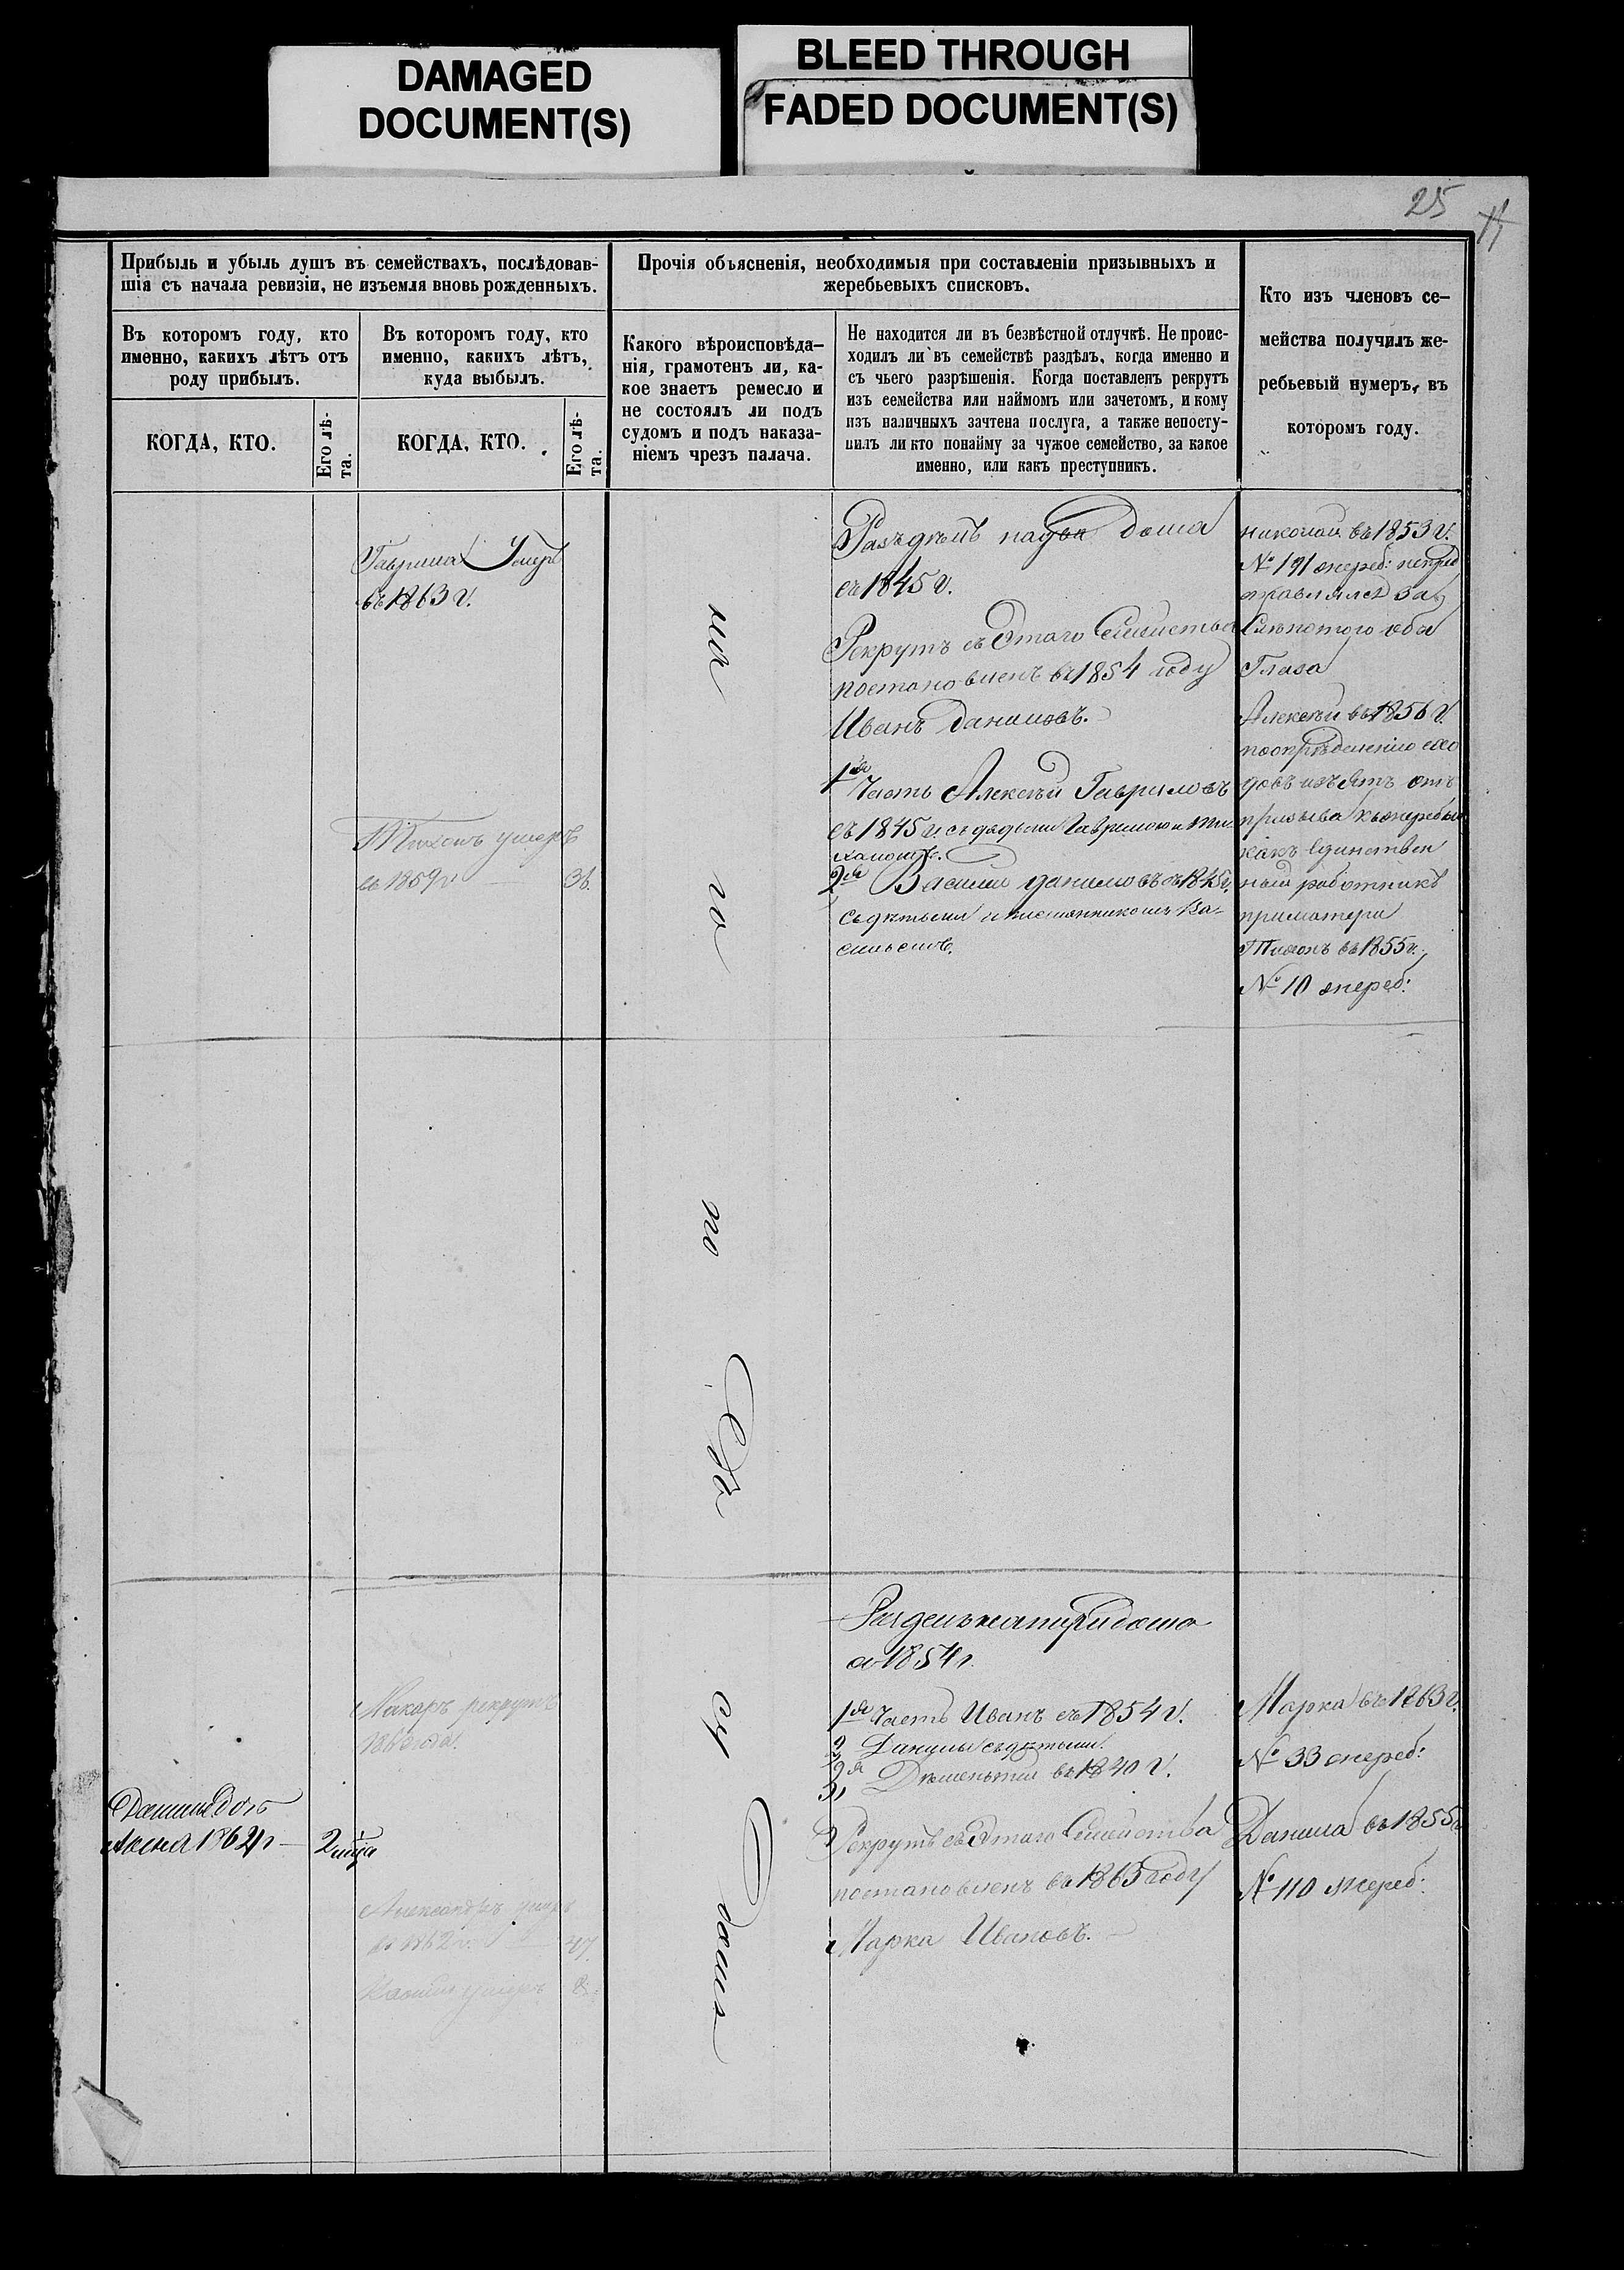 DAMAGED
DOCUMENT(S)
BLEED THROUGH
FADED DOCUMENT(S)
25
Прибыль и убыль душъ въ семействахъ, послѣдовав-
шія съ начала ревизіи, не изъемля вновь рожденныхъ.
Въ которомъ году, кто
именно, какихъ лѣтъ отъ
роду прибылъ.
КОГДА, КТО.
Его лѣ-
та.
Въ которомъ году, кто
именно, какихъ лѣтъ,
куда выбылъ.
КОГДА, КТО.
Его лѣ-
та.
Прочія объясненія, необходимыя при составленіи призывныхъ и
жеребьевыхъ списковъ.
Какого вѣроисповѣда-
нія, грамотенъ ли, ка-
кое знаетъ ремесло и
не состоялъ ли подъ
судомъ и подъ наказа-
ніемъ чрезъ палача.
Не находится ли въ безвѣстной отлучкѣ. Не проис-
ходилъ ли въ семействѣ раздѣлъ, когда именно и
съ чьего разрѣшенія. Когда поставленъ рекрутъ
изъ семейства или наймомъ или зачетомъ, и кому
изъ наличныхъ зачтена послуга, а также непосту-
пилъ ли кто понайму за чужое семейство, за какое
именно, или какъ преступникъ.
Кто изъ членовъ се-
мейства получилъ же-
ребьевый нумеръ, въ
которомъ году.
Гаврила Умеръ
въ 1863 г.
Тихонъ умеръ
въ 1859 г. — 36.
Разъделъ на два дома
съ 1845 г.
Рекрутъ съ Этаго Семейства
постановленъ въ 1854 году
Иванъ Даниловъ.
1я Часть Алексѣй Гавриловъ
съ 1845 г. съ дядьями Гавриломъ и Ти-
хономъ.
2я Василий Даниловъ съ 1845 г.
съ дѣтьми и племянникомъ Ва-
сильемъ.
николай въ 1853 г.
№ 191 жереб:
за
Глаза
Алексѣй въ 1856 г.
поопрѣделению схо
довъ изъятъ отъ
призыва къ жеребью
какъ Единствен
ный работникъ
приматери
Тихонъ въ 1855 г.
№ 10 жереб:
Разделъ на три дома
въ 1854 г.
1я Часть Иванъ съ 1854 г.
2 Данилы съ дѣтьми.
3я въ 1840 г.
Рекрутъ съ Этаго Семейства
постановленъ въ 1863 году
Марка Ивановъ.
Марка въ 1863 г.
№ 33 жереб:
Данила въ 1855 г.
№ 110 жереб:
Макаръ рекрутъ
1862 г.
Александръ умеръ
въ 1862 г. 47.
умеръ